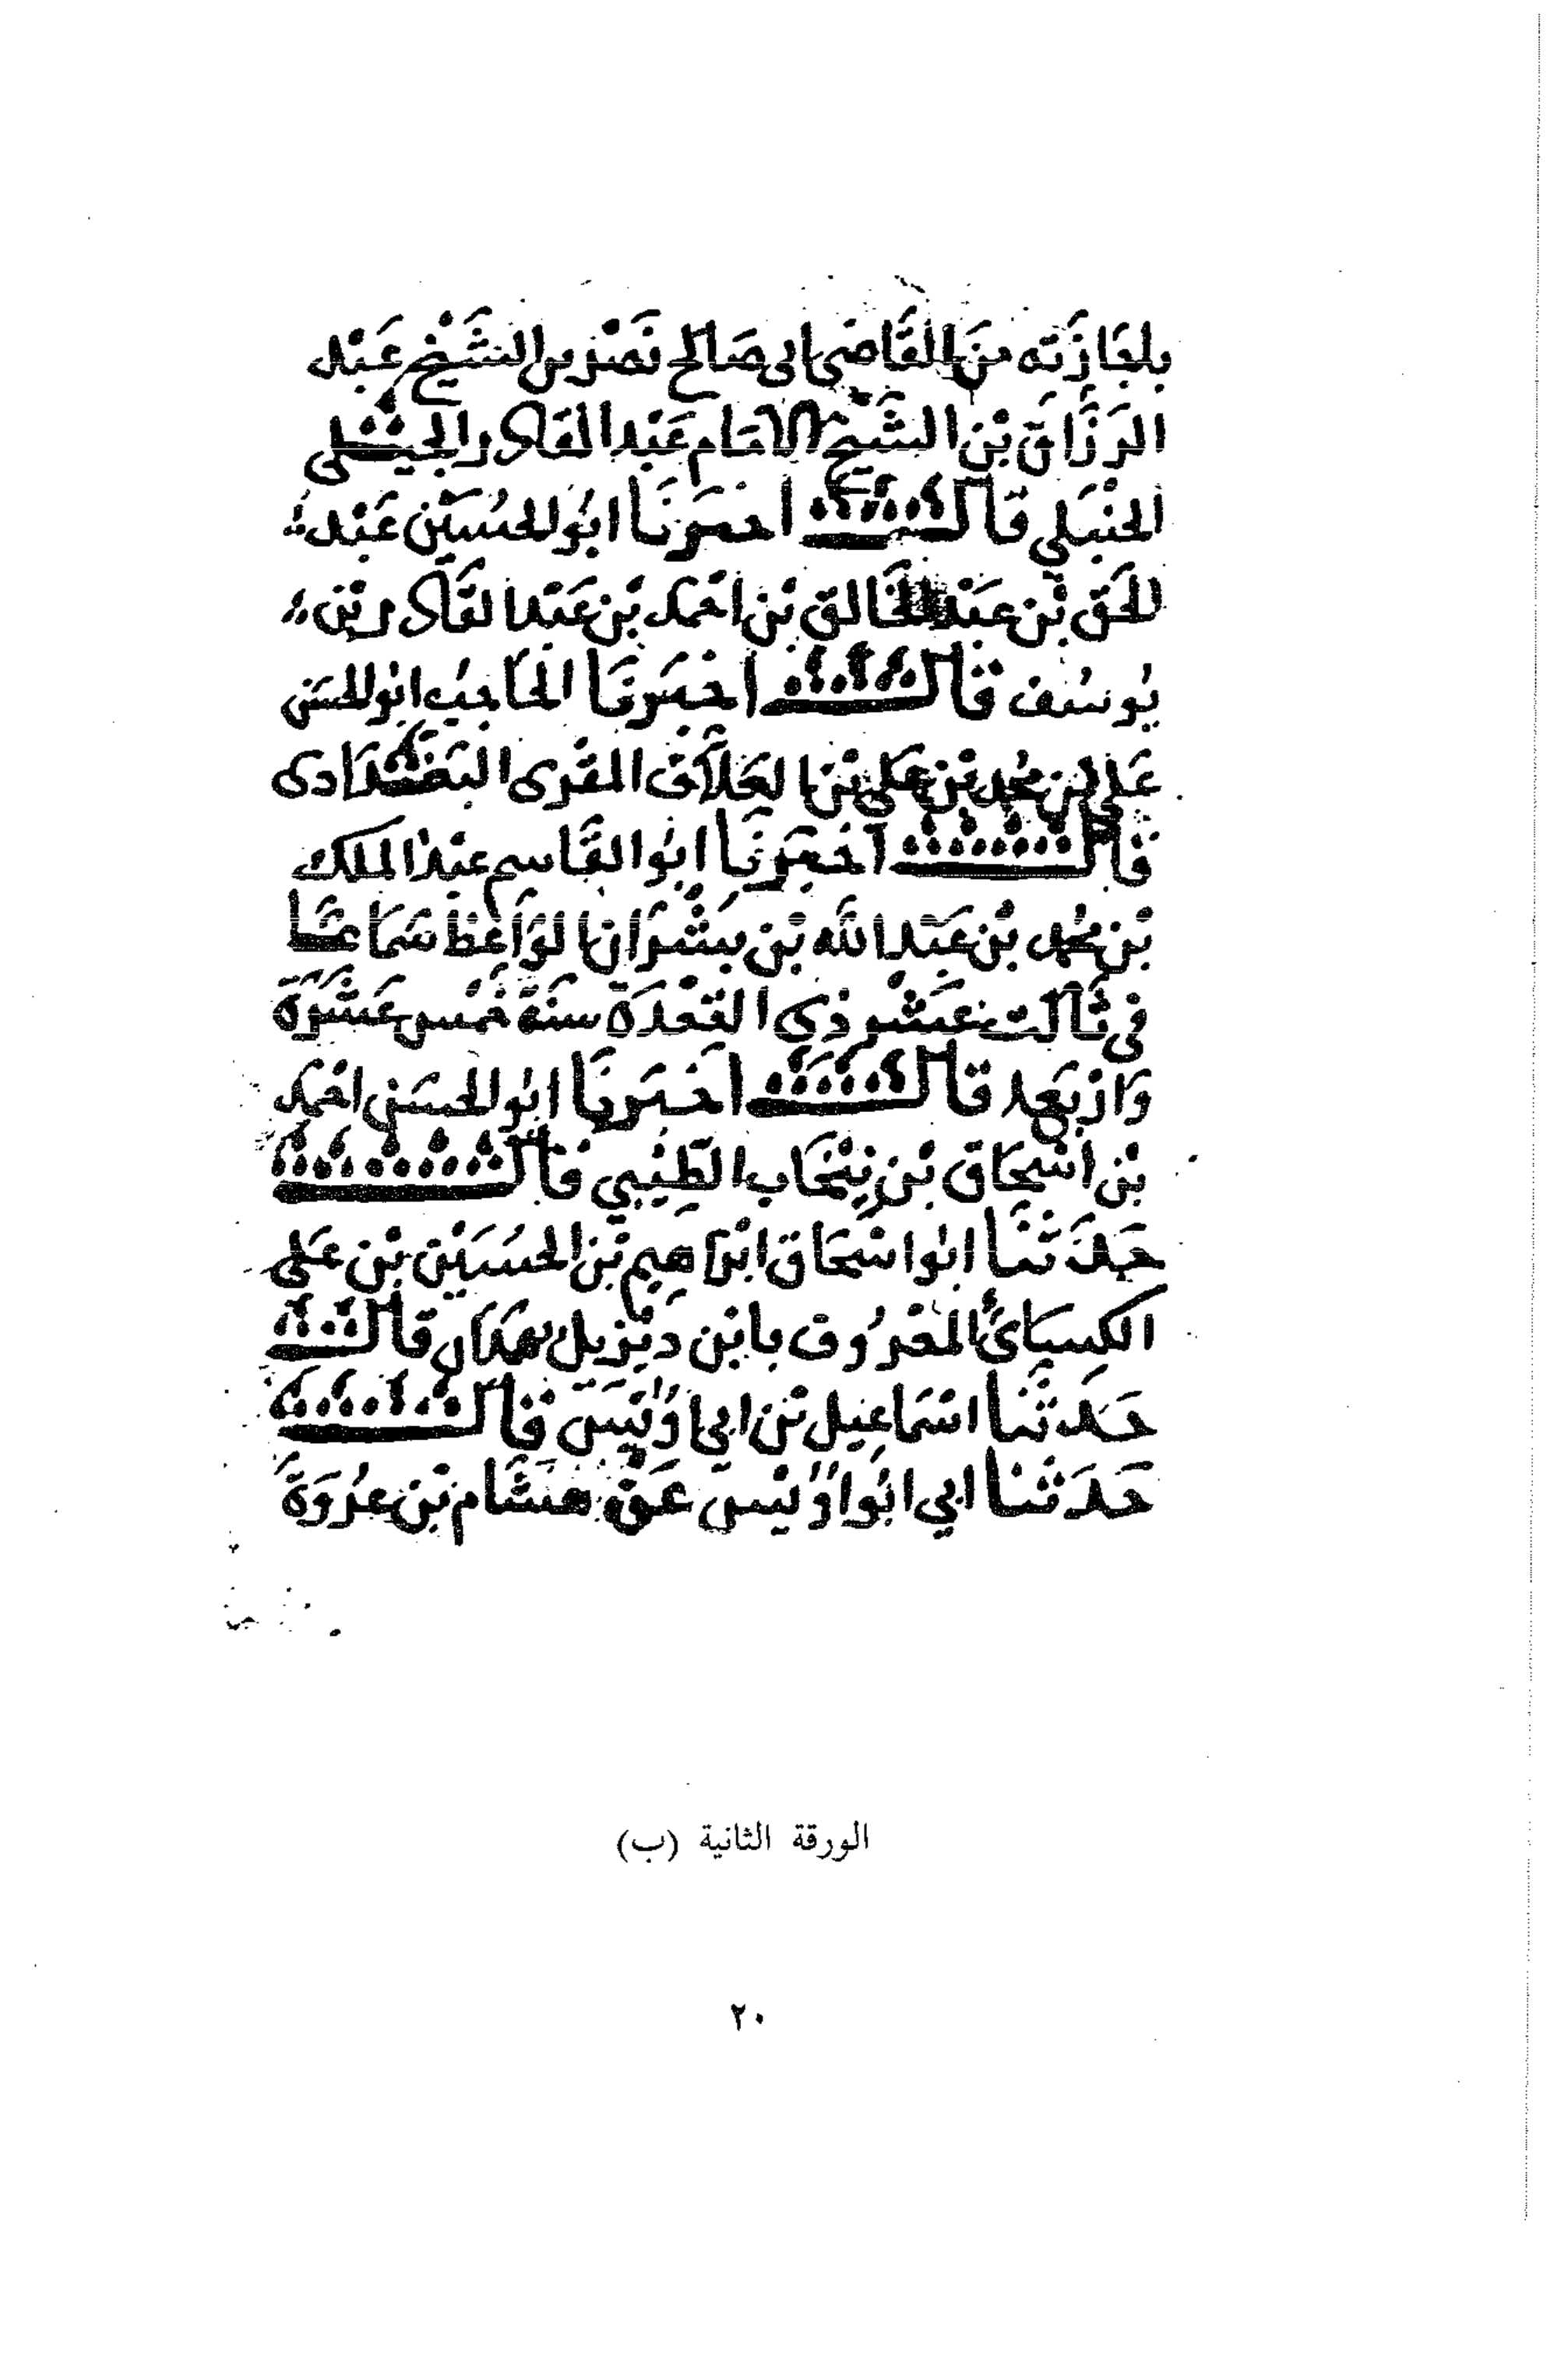 بإجازته من القاضي ابى صالح نصر بن الشيخ عبد
الرزاق بن الشيخ الامام عبد القادر الجيلي
الحنبلي قال اخبرنا ابو الحسين عبد
الحق بن عبد الخالق بن احمد بن عبد القادر بن
يوسف قال اخبرنا الحاجب ابو الحسن
علي بن محمد بن علي بن العلاف المقرى البغدادى
قال اخبرنا ابو القاسم عبد الملك
بن محمد بن عبد الله بن بشران الواعظ سماعا
في ثالث عشر ذى القعدة سنة خمس عشرة
واربعمد قال اخبرنا ابو الحسن احمد
بن اسحاق بن نيخاب الطيبي قال
حدثنا ابو اسحاق ابراهيم بن الحسين بن على
الكسائى المعروف بابن ديزيل بهمدان قال
حدثنا اسماعيل بن ابي اويس قال
حدثنا ابي ابو اويس عن هشام بن عروة
الورقة الثانية (ب)
٢٠